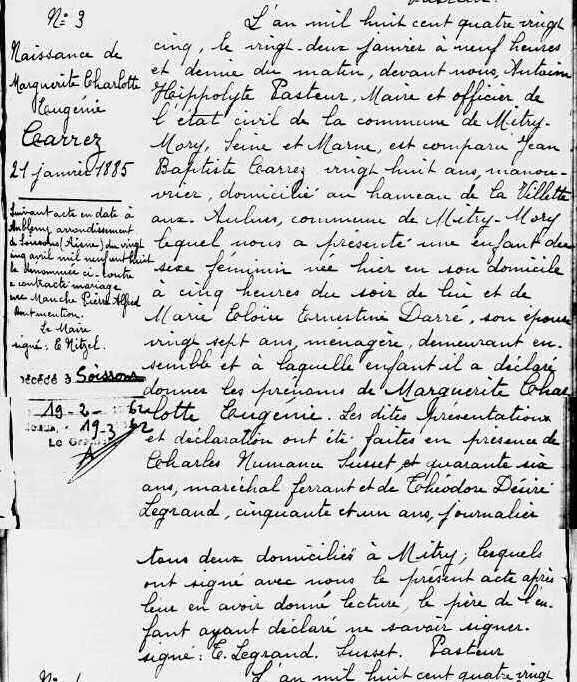 N° 3
Naissance de
Marguerite Charlotte
Eugénie
Carrez
21 janvier 1885
Suivant acte en date à
Ambleny arrondissement
de Soissons (Aisne) du vingt
cinq avril mil neuf cent huit
la dénommée ci-contre
a contracté mariage
avec Manche Pierre Alfred
dont mention.
Le Maire
signé: E. Nitzel.
Décédé à Soissons
19-2-1962
19-3 62
Le Greffier
L'an mil huit cent quatre vingt
cinq, le vingt-deux janvier à neuf heures
et demie du matin, devant nous, Antoine
Hippolyte Pasteur, Maire et officier de
l'état civil de la commune de Mitry-
Mory, Seine et Marne, est comparu Jean
Baptiste Carrez vingt huit ans, manou-
vrier, domicilié au hameau de la Villette
aux-Aulnes, commune de Mitry-Mory
lequel nous a présenté une enfant du
sexe féminin née hier en son domicile
à cinq heures du soir de lui et de
Marie Eloïse Ernestine Darré, son épouse
vingt sept ans, ménagère, demeurant en-
semble et à laquelle enfant il a déclaré
donner les prénoms de Marguerite Char
lotte Eugénie. Les dites présentations
et déclaration ont été faites en présence de
Charles Numance Susset et quarante six
ans, maréchal ferrant et de Théodore Désiré
Legrand, cinquante et un ans, journalier
tous deux domiciliés à Mitry; lesquels
ont signé avec nous le présent acte après
leur en avoir donné lecture, le père de l'en-
fant ayant déclaré ne savoir signer.
signé: T. Legrand. Susset. Pasteur
L'an mil huit cent quatre vingt